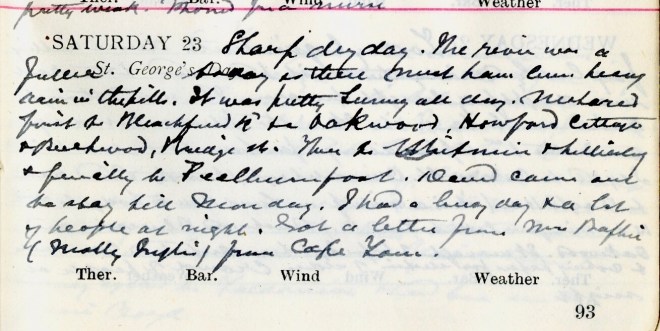 pretty weak. Phoned for a nurse
Ther. Bar. Wind Weather
SATURDAY 23 Sharp dry day. The river was a
St. George's Day
fuller today so there must have been heavy
rain in the hills. It was pretty sunny all day. Motored
first to Blackford to Oakwood, Howford Cottage
& Beechwood, Bridge St. Then to Whitmuir &
& finally to Peelburnfoot. David came out
to stay till Monday. I had a busy day & a lot
of people at night. Got a letter from Mrs
(Molly Inglis) from Cape Town.
Ther. Bar. Wind Weather
93